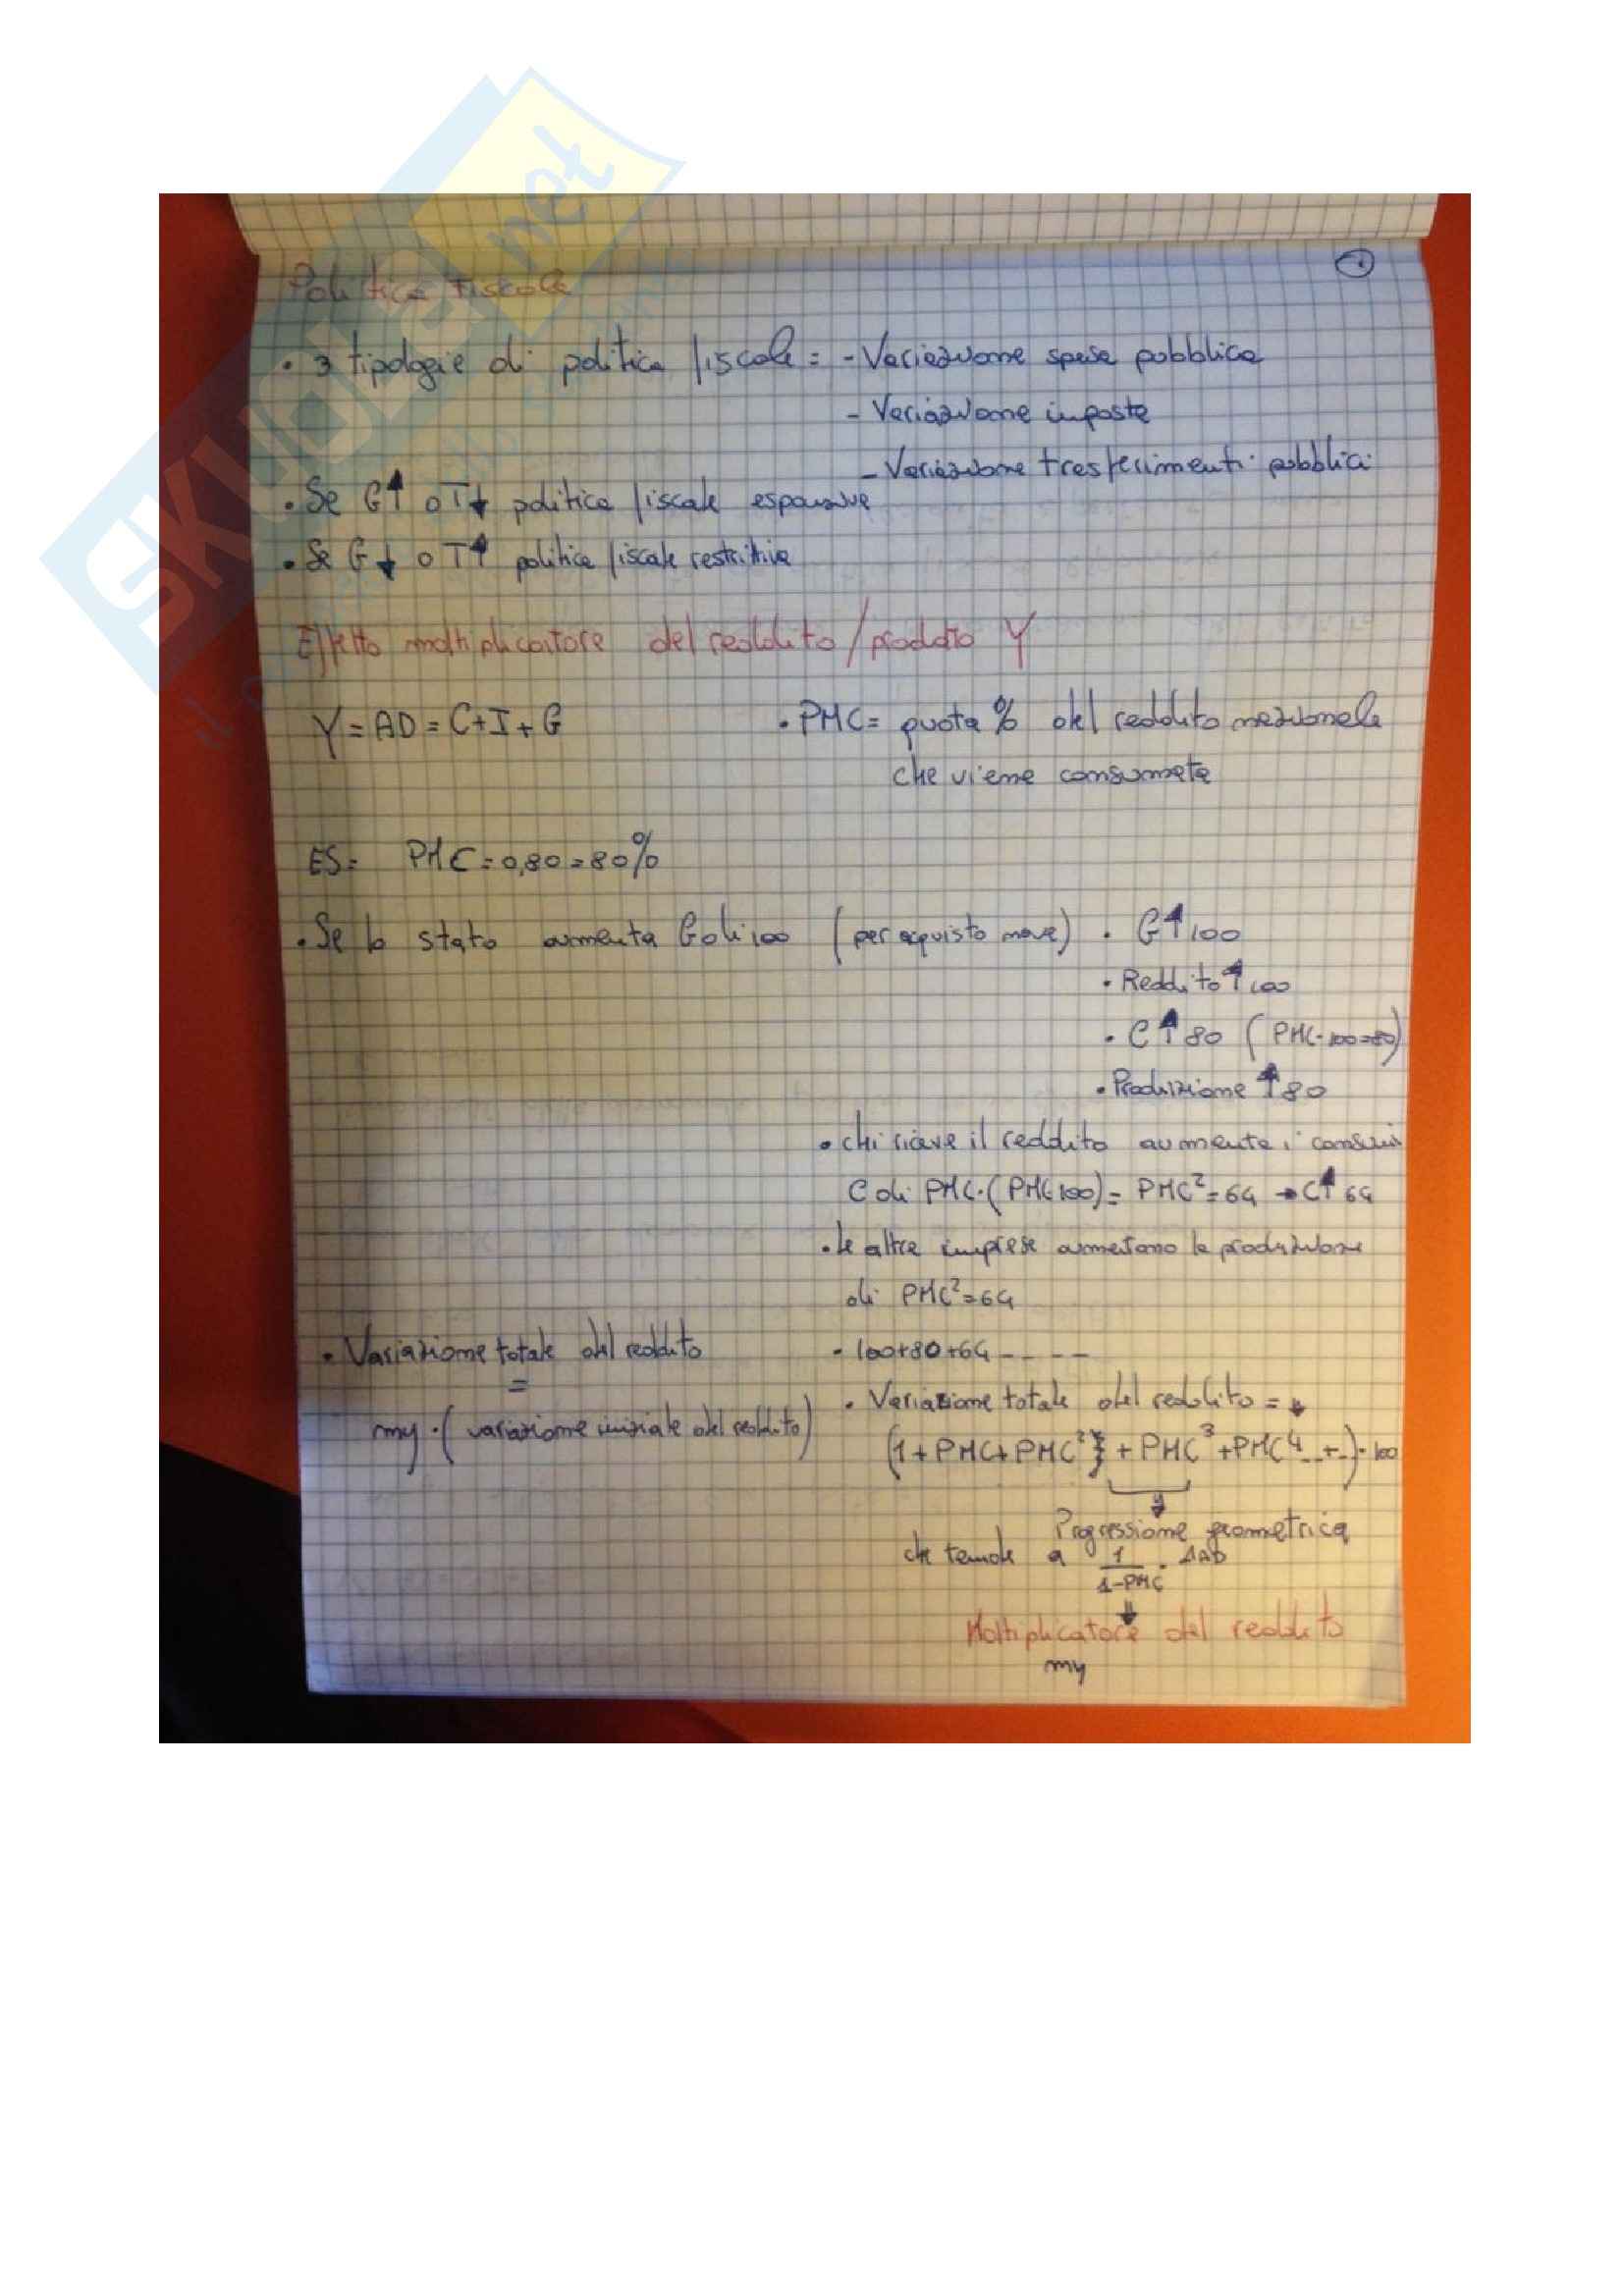 Skuola.net
Politica fiscale
1
• 3 tipologie di politica fiscale = - Variazione spesa pubblica
- Variazione imposte
- Variazione trasferimenti pubblici
• Se G↑ o T↓ politica fiscale espansiva
• Se G↓ o T↑ politica fiscale restrittiva
Effetto moltiplicatore del reddito/prodotto Y
Y = AD = C+I+G
• PMC = quota % del reddito nazionale
che viene consumata
ES = PMC = 0,80 = 80%
• Se lo stato aumenta G di 100 (per acquisto nave) • G↑100
• Reddito↑100
• C↑80 (PMC·100=80)
• Produzione ↑80
• chi riceve il reddito aumenta i consumi
C di PMC·(PMC100) = PMC²=64 → C↑64
• le altre imprese aumetano la produzione
di PMC²=64
• Variazione totale del reddito
=
my·(variazione iniziale del reddito)
• 100+80+64 - - - -
• Variazione totale del reddito = ↓
(1+PMC+PMC² + PMC³ +PMC⁴ _ _+_)·100
Progressione geometrica
che tende a 1/1-PMC · ΔAD
Moltiplicatore del reddito
my